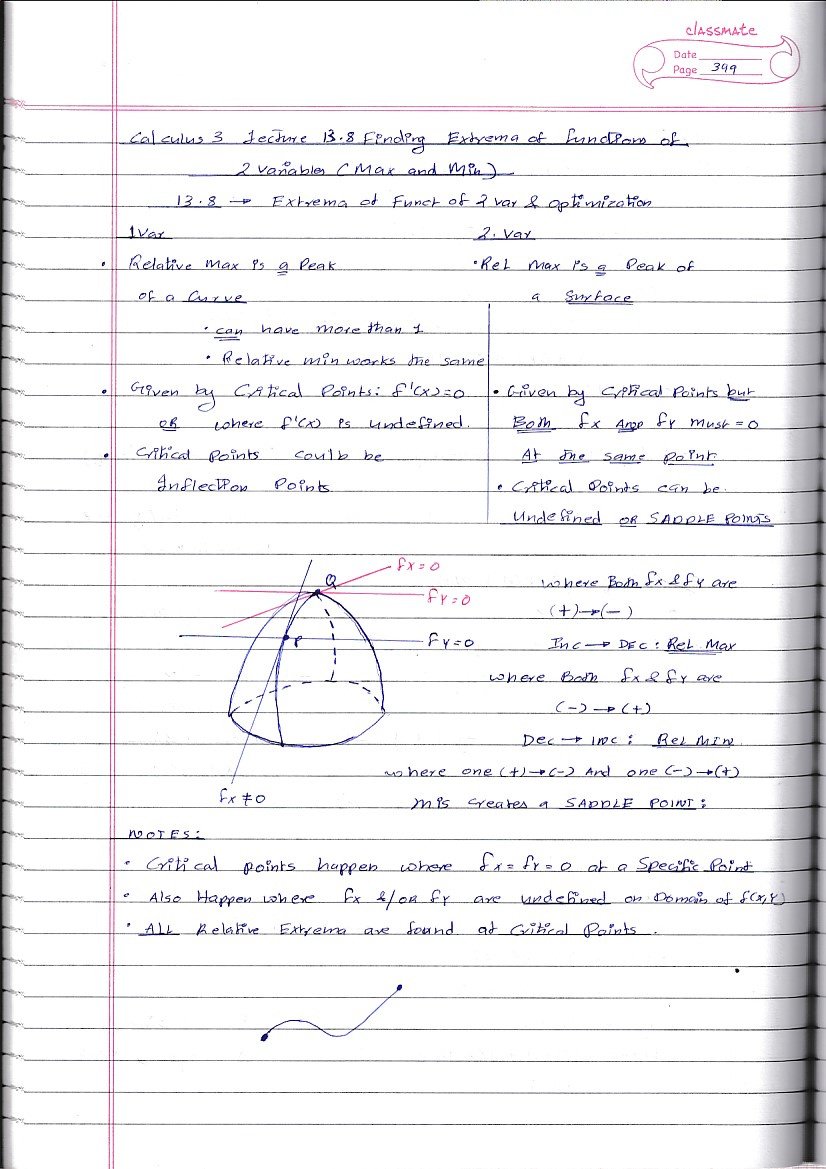 classmate
Date
Page 349
Calculus 3 Lecture 13.8 Finding Extrema of functions of
2 Variables (Max and Min)
13.8 → Extrema of Funct of 2 var & optimization
1 Var
• Relative Max is a Peak
of a Curve
• can have more than 1
• Relative min works the same
• Given by Critical Points: f'(x)=0
OR where f'(x) is undefined.
• Critical points could be
Inflection Points
2. Var
• Rel Max is a Peak of
a Surface
• Given by Critical Points but
Both fx AND fy Must = 0
At the same point
• Critical Points can be
undefined OR SADDLE POINTS
fx=0
Q
fy=0
P
fy=0
fx≠0
where Both fx & fy are
(+)→(-)
Inc → DEC : Rel Max
where Both fx & fy are
(-) → (+)
Dec → INC : Rel MIN
where one (+)→(-) And one (-)→(+)
This creates a SADDLE POINT:
NOTES:
• Critical points happen where fx = fy = 0 at a Specific Point
• Also Happen where fx &/OR fy are undefined on Domain of f(x,y)
• ALL Relative Extrema are found at Critical Points.